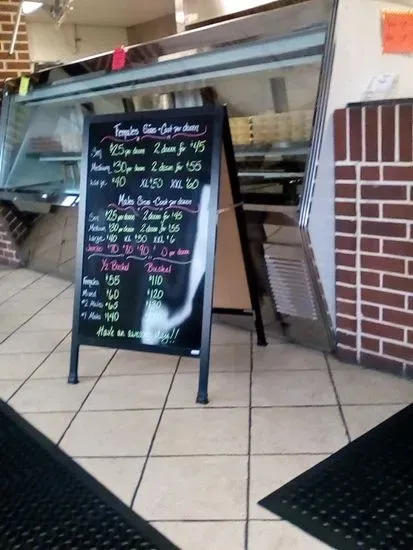 Females Sizes - Cost per dozen
Sm $25 per dozen 2 dozen for $45
Medium $30 per dozen 2 dozen for $55
Large $40 XL $50 XXL $60
Males Sizes - Cost per dozen
Sm $25 per dozen 2 dozen for $45
Medium $30 per dozen 2 dozen for $55
Large $40 XL $50 XXL $6
Jumbo $70 $80 $90 0 per dozen
1/2 Bushel Bushel
Females $55 $110
Mixed $60 $120
#2 Males $65
#1 Males $140
Have an day!!